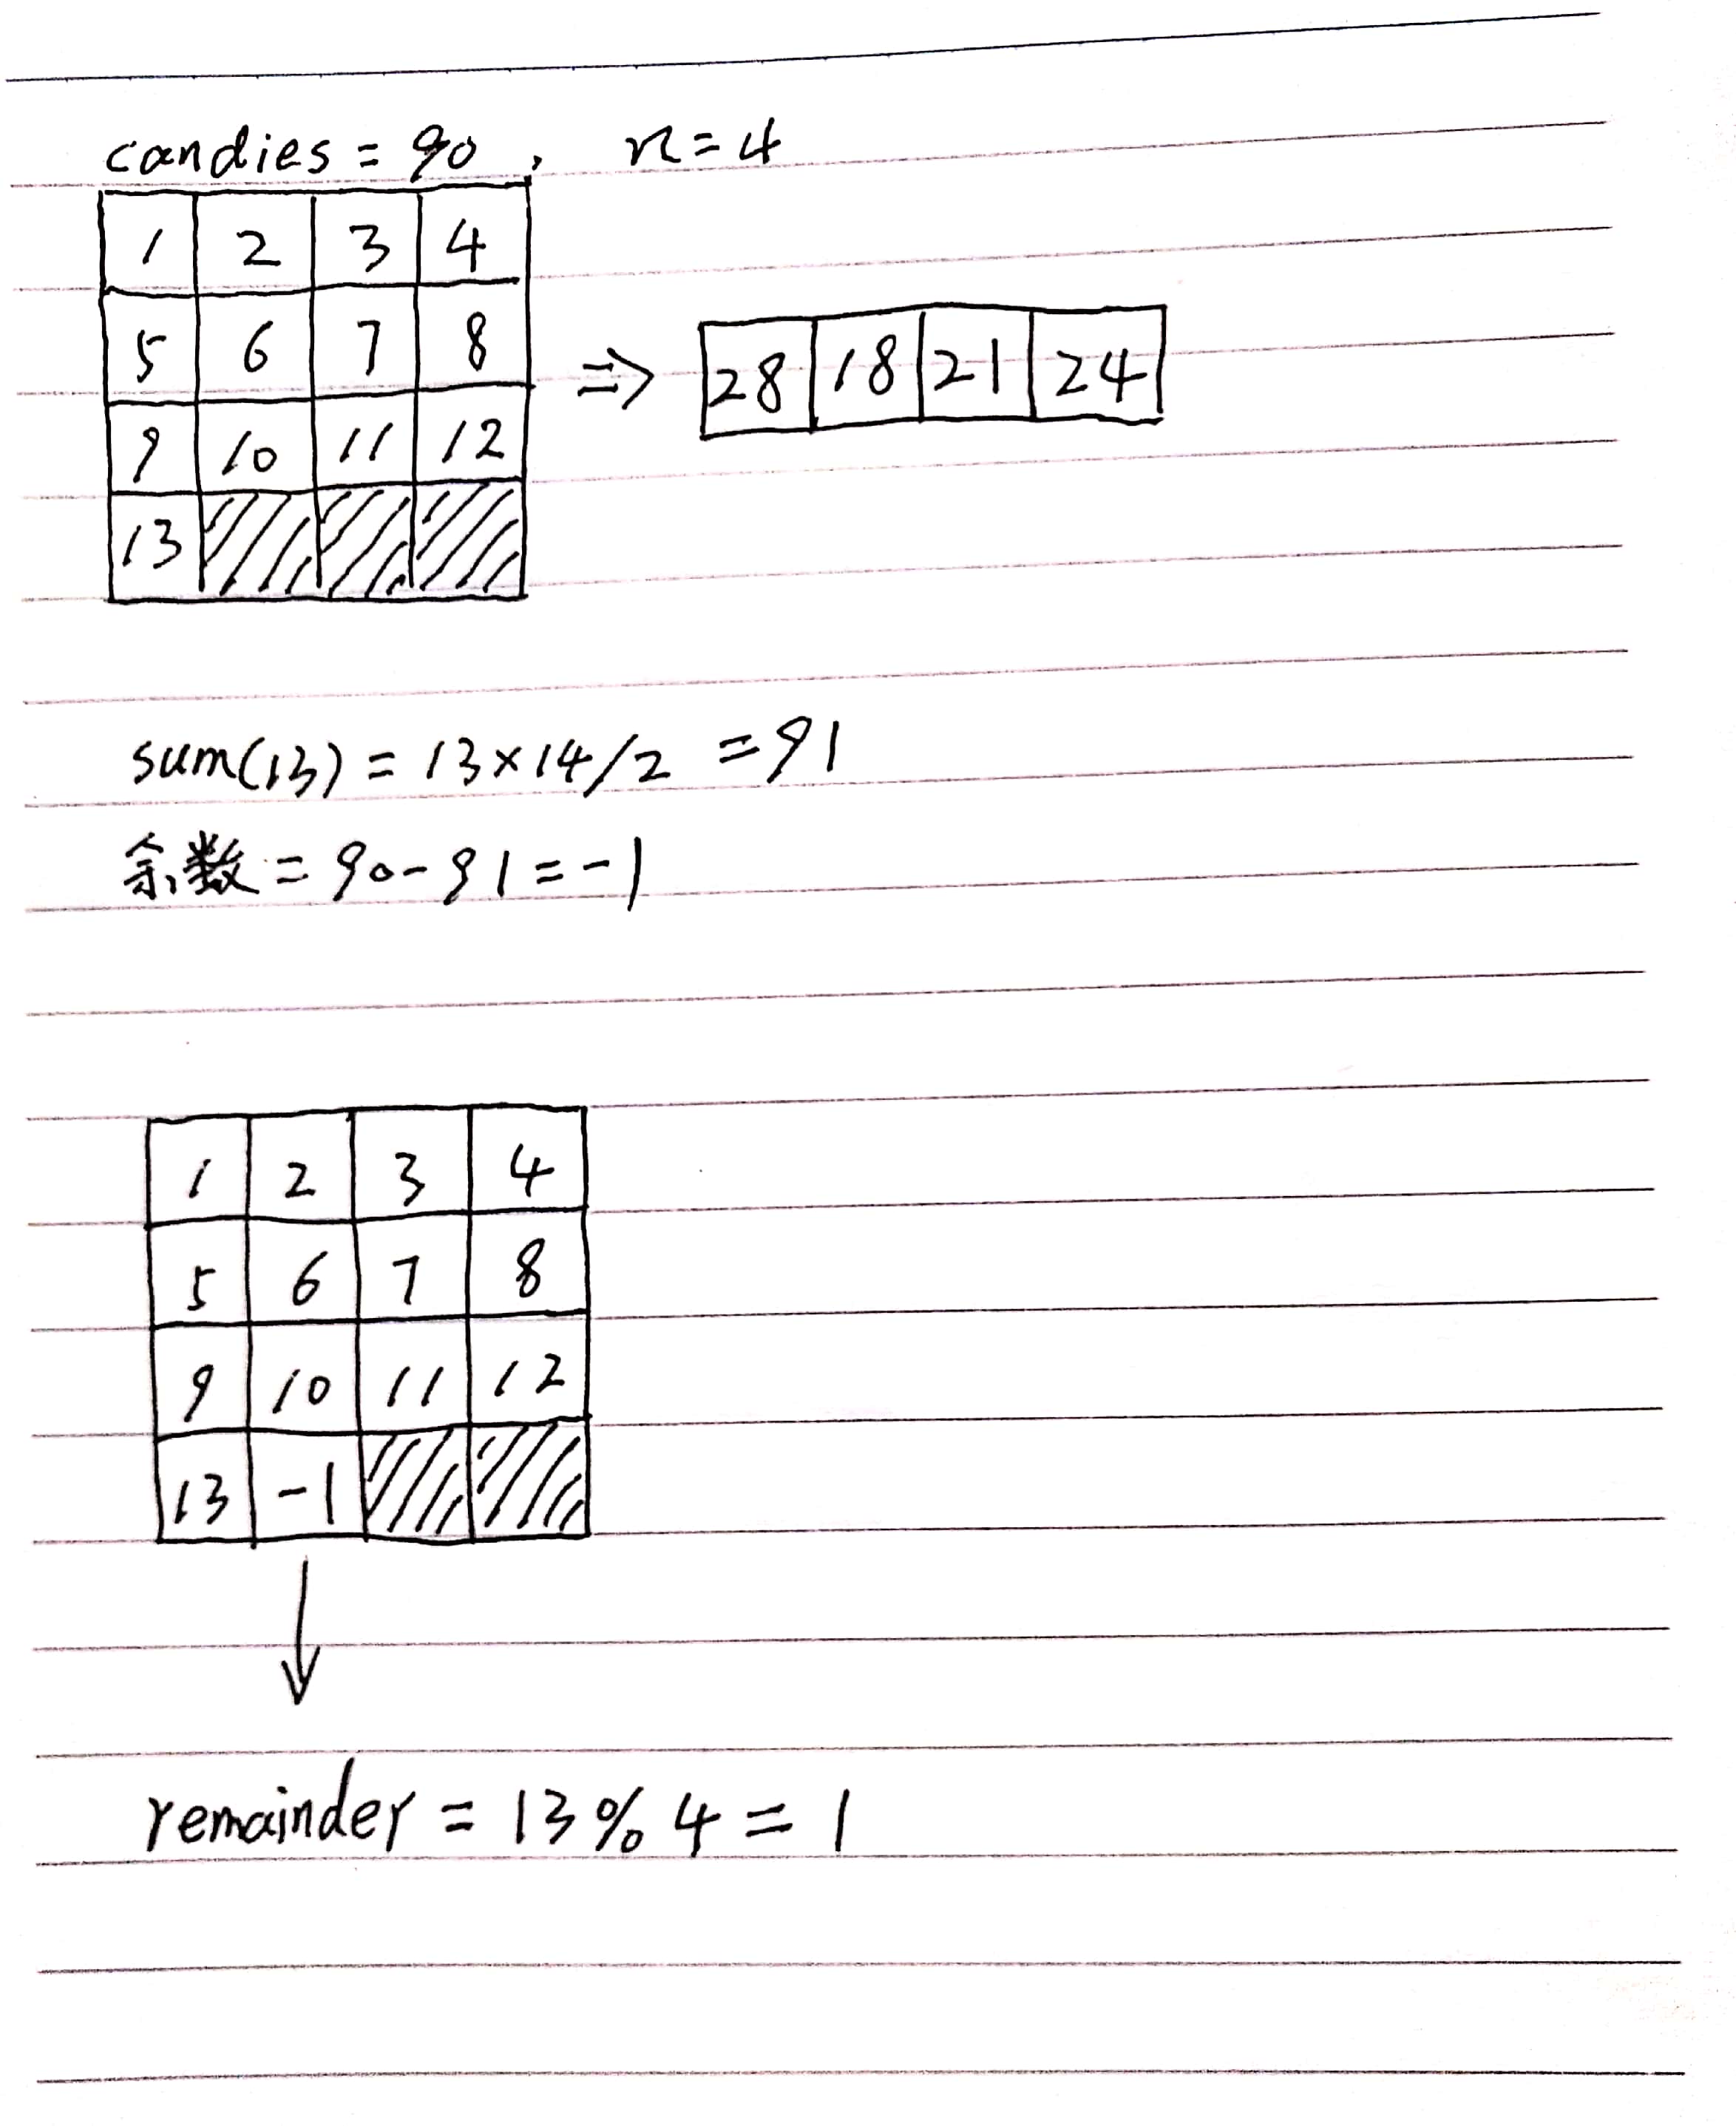 candies = 90, n=4
1 2 3 4
5 6 7 8
9 10 11 12
13
=> 28 18 21 24
sum(13) = 13×14/2 = 91
余数 = 90-91=-1
1 2 3 4
5 6 7 8
9 10 11 12
13 -1
remainder = 13%4=1